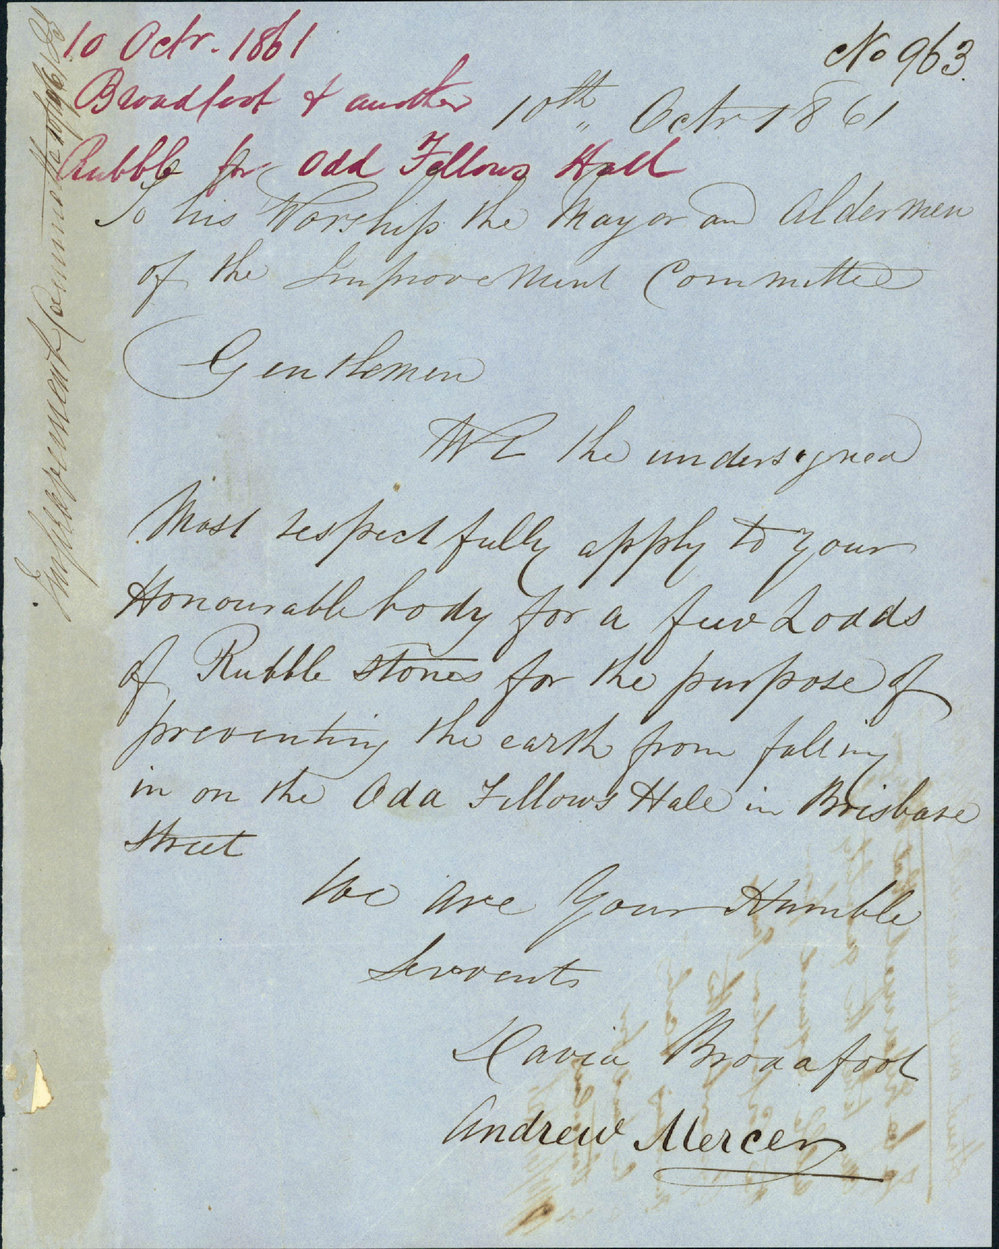 10 Octr. 1861
No 963.
Broadfoot & another
10th Octr 1861
Rubble for Odd Fellows Hall
To his Worship the Mayor and Aldermen
of the Improvement Committee
Gentlemen
We the undersigned
Most respectfully apply to your
Honourable body for a few Loads
of Rubble stones for the purpose of
preventing the earth from falling
in on the Odd Fellows Hall in Brisbane
street
We are Your Humble
Servents
David Broadfoot
Andrew Mercer
Improvement Committee